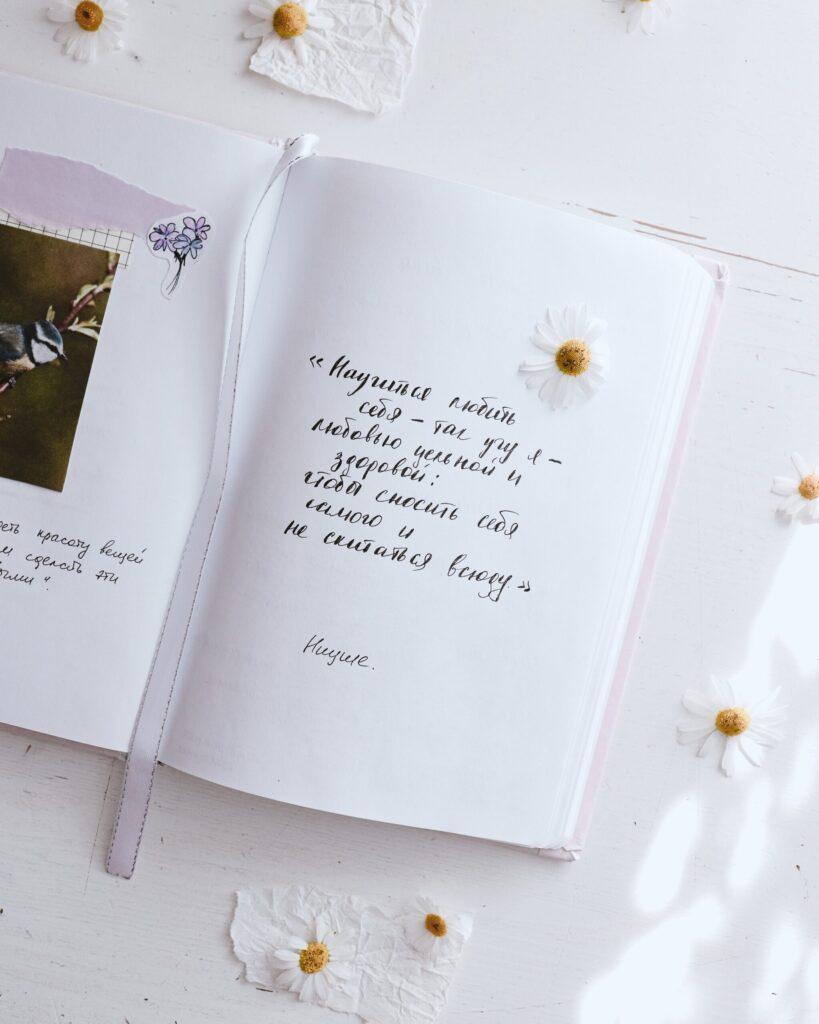 реть красоту вещей
м сделать эти
ыми".
«Научиться любить
себя – так учу я –
любовью цельной и
здоровой:
чтобы сносить себя
самого и
не скитаться всюду.»
Ницше.